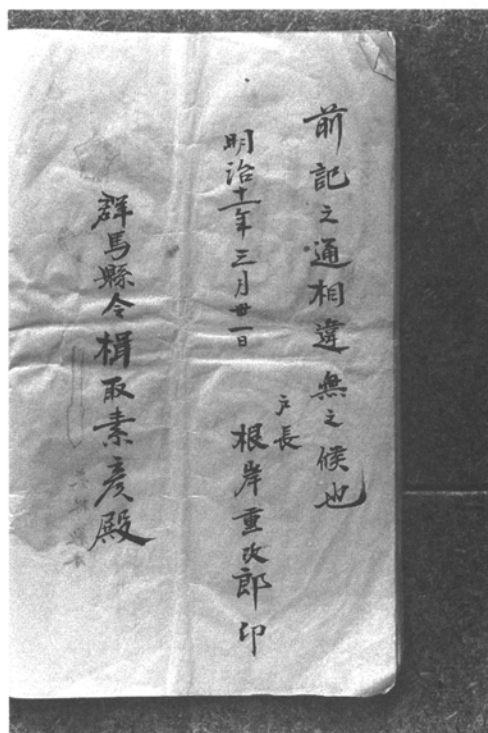 前記之通相違無之候也
明治十一年三月廿一日
戸長
根岸重改郎印
群馬縣令楫取素彦殿